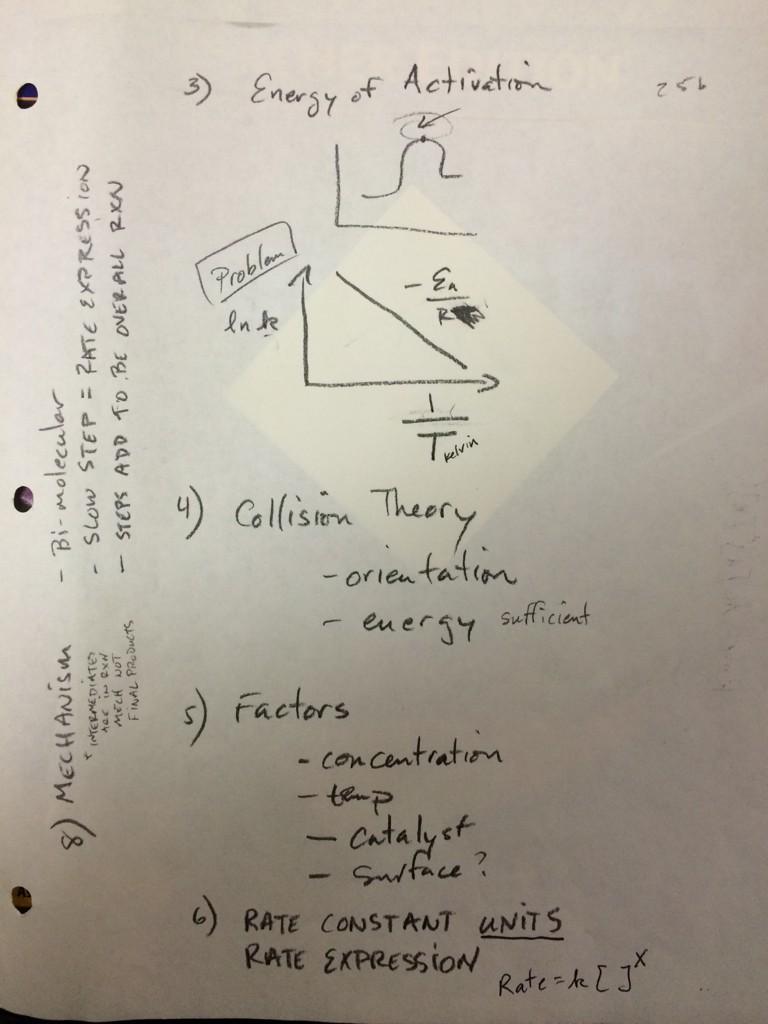 3) Energy of Activation
Problem
ln k
- Ea
R
1
T kelvin
4) Collision Theory
- orientation
- energy sufficient
5) Factors
- concentration
- temp
- catalyst
- surface?
6) RATE CONSTANT UNITS
RATE EXPRESSION
Rate = k [ ]^x
8) MECHANISM - Bi-molecular
- SLOW STEP = RATE EXPRESSION
- STEPS ADD TO BE OVERALL RXN
* INTERMEDIATES
ARE IN RXN
MECH NOT
FINAL PRODUCTS